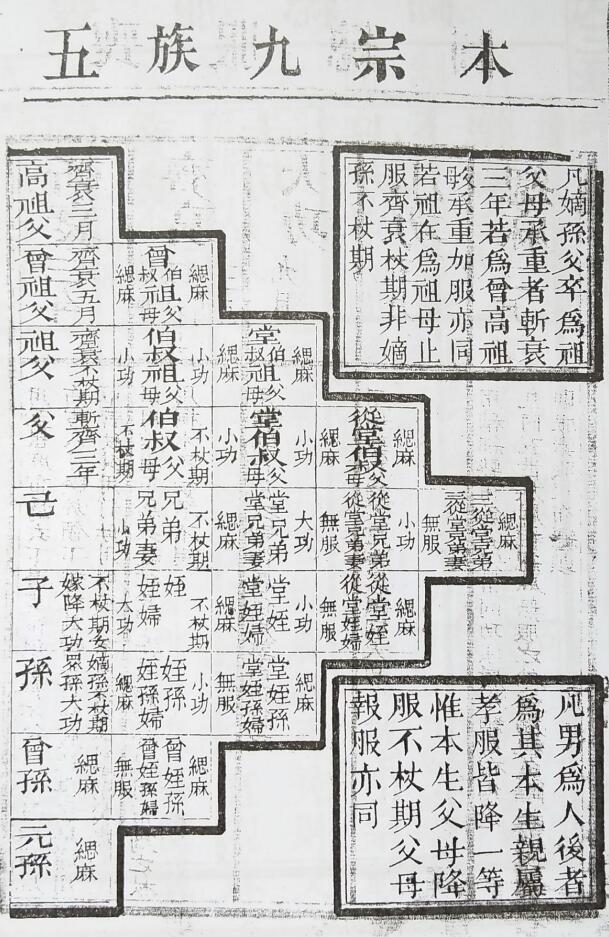 本宗九族五
凡嫡孫父卒爲祖
父母承重者斬衰
三年若爲曾高祖
父母承重加服亦同
若祖在爲祖母止
服齊衰杖期非嫡
孫不杖期
高祖父
齊衰三月
曾祖父
齊衰五月
緦麻
曾伯叔祖父母
緦麻
祖父
齊衰不杖期
小功
伯叔祖父母
小功
緦麻
堂伯叔祖父母
緦麻
父
斬齊三年
不杖期
伯叔父母
不杖期
小功
堂伯叔父母
小功
緦麻
從堂伯叔父母
緦麻
己
小功
兄弟妻
兄弟
不杖期
緦麻
堂兄弟妻
堂兄弟
大功
無服
從堂兄弟妻
從堂兄弟
小功
無服
三從堂兄弟妻
三從堂兄弟
緦麻
子
不杖期女
嫁降大功
大功
姪婦
姪
不杖期
緦麻
堂姪婦
堂姪
小功
無服
從堂姪婦
從堂姪
緦麻
孫
嫡孫不杖期
衆孫大功
緦麻
姪孫婦
姪孫
小功
無服
堂姪孫婦
堂姪孫
緦麻
曾孫
緦麻
無服
曾姪孫婦
曾姪孫
緦麻
元孫
緦麻
凡男爲人後者
爲其本生親屬
孝服皆降一等
惟本生父母降
服不杖期父母
報服亦同